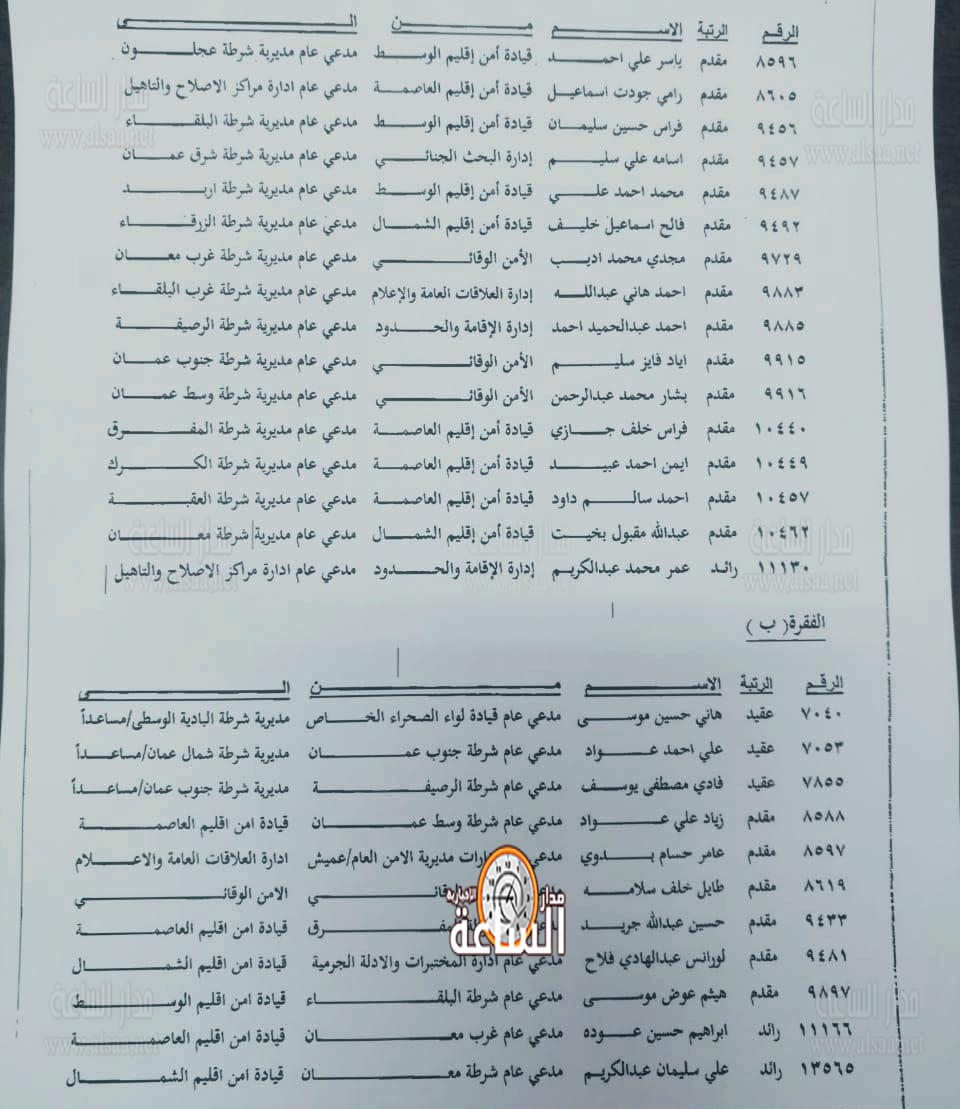 الرقم الرتبة الاسم من الى
٨٥٩٦ مقدم ياسر علي احمد قيادة أمن إقليم الوسط مدعي عام مديرية شرطة عجلون
٨٦٠٥ مقدم رامي جودت اسماعيل قيادة أمن إقليم العاصمة مدعي عام ادارة مراكز الاصلاح والتاهيل
٩٤٥٦ مقدم فراس حسين سليمان قيادة أمن إقليم الوسط مدعي عام مديرية شرطة البلقاء
٩٤٥٧ مقدم اسامه علي سليم إدارة البحث الجنائي مدعي عام مديرية شرطة شرق عمان
٩٤٨٧ مقدم محمد احمد علي قيادة أمن إقليم الوسط مدعي عام مديرية شرطة اربد
٩٤٩٢ مقدم فالح اسماعيل خليف قيادة أمن إقليم الشمال مدعي عام مديرية شرطة الزرقاء
٩٧٢٩ مقدم مجدي محمد اديب الأمن الوقائي مدعي عام مديرية شرطة غرب معان
٩٨٨٣ مقدم احمد هاني عبدالله إدارة العلاقات العامة والإعلام مدعي عام مديرية شرطة غرب البلقاء
٩٨٨٥ مقدم احمد عبدالحميد احمد إدارة الإقامة والحدود مدعي عام مديرية شرطة الرصيفة
٩٩١٥ مقدم اياد فايز سليم الأمن الوقائي مدعي عام مديرية شرطة جنوب عمان
٩٩١٦ مقدم بشار محمد عبدالرحمن الأمن الوقائي مدعي عام مديرية شرطة وسط عمان
١٠٤٤٠ مقدم فراس خلف جازي قيادة أمن إقليم العاصمة مدعي عام مديرية شرطة المفرق
١٠٤٤٩ مقدم ايمن احمد عبيد قيادة أمن إقليم العاصمة مدعي عام مديرية شرطة الكرك
١٠٤٥٧ مقدم احمد سالم داود قيادة أمن إقليم العاصمة مدعي عام مديرية شرطة العقبة
١٠٤٦٢ مقدم عبدالله مقبول بخيت قيادة أمن إقليم الشمال مدعي عام مديرية شرطة معان
١١١٣٠ رائد عمر محمد عبدالكريم إدارة الإقامة والحدود مدعي عام ادارة مراكز الاصلاح والتاهيل
الفقرة( ب )
الرقم الرتبة الاسم من الى
٧٠٤٠ عقيد هاني حسين موسى مدعي عام قيادة لواء الصحراء الخاص مديرية شرطة البادية الوسطى/مساعداً
٧٠٥٣ عقيد علي احمد عواد مدعي عام شرطة جنوب عمان مديرية شرطة شمال عمان/مساعداً
٧٨٥٥ عقيد فادي مصطفى يوسف مدعي عام شرطة الرصيفة مديرية شرطة جنوب عمان/مساعداً
٨٥٨٨ مقدم زياد علي عواد مدعي عام شرطة وسط عمان قيادة امن اقليم العاصمة
٨٥٩٧ مقدم عامر حسام بدوي مدعي مديرية الامن العام/عميش ادارة العلاقات العامة والاعلام
٨٦١٩ مقدم طايل خلف سلامه الامن الوقائي
٩٤٣٣ مقدم حسين عبدالله جريد قيادة امن اقليم العاصمة
٩٤٨١ مقدم لورانس عبدالهادي فلاح مدعي عام ادارة المختبرات والادلة الجرمية قيادة امن اقليم الشمال
٩٨٩٧ مقدم هيثم عوض موسى مدعي عام شرطة البلقاء قيادة امن اقليم الوسط
١١١٦٦ رائد ابراهيم حسين عوده مدعي عام غرب معان قيادة امن اقليم العاصمة
١٣٥٦٥ رائد علي سليمان عبدالكريم مدعي عام شرطة معان قيادة امن اقليم الشمال
مدار الساعة الاخبارية
مدار الساعة
www.alsaa.net